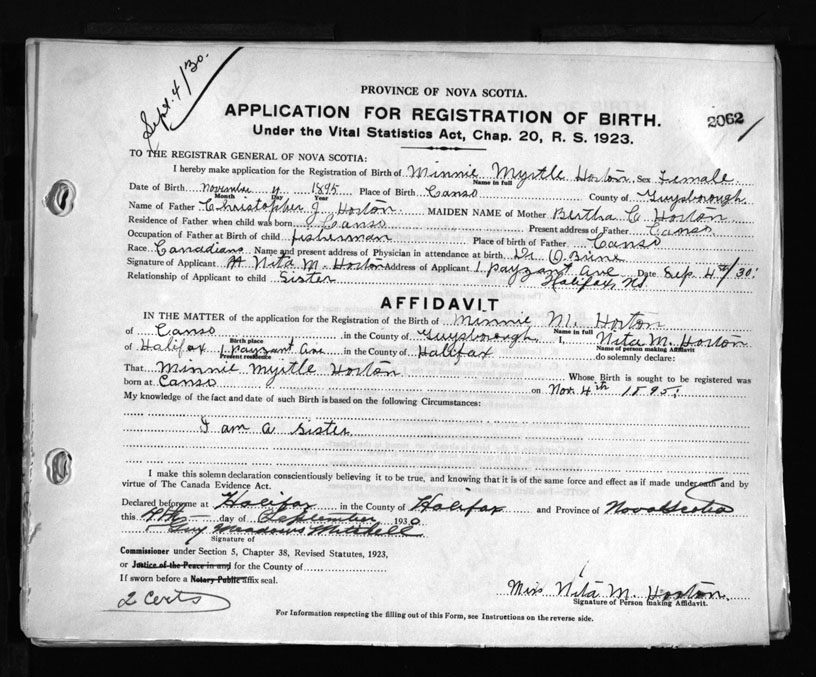 Sept. 4/30.
PROVINCE OF NOVA SCOTIA.
APPLICATION FOR REGISTRATION OF BIRTH.
2062
Under the Vital Statistics Act, Chap. 20, R. S. 1923.
TO THE REGISTRAR GENERAL OF NOVA SCOTIA:
I hereby make application for the Registration of Birth of Minnie Myrtle Horton Sex Female
Name in full
Date of Birth November 4 1895 Place of Birth Canso County of Guysborough
Month Day Year
Name of Father Christopher J. Horton MAIDEN NAME of Mother Bertha C Horton
Residence of Father when child was born Canso Present address of Father Canso
Occupation of Father at Birth of child fisherman Place of birth of Father Canso
Race Canadians Name and present address of Physician in attendance at birth Dr O.
Signature of Applicant Nita M. Horton Address of Applicant 1 payzant Ave Date Sep. 4th/30.
Relationship of Applicant to child Sister Halifax, NS
AFFIDAVIT
IN THE MATTER of the application for the Registration of the Birth of Minnie M. Horton
Name in full
of Canso in the County of Guysborough I, Nita M. Horton
Birth place Name of person making Affidavit
of Halifax 1 payzant Ave in the County of Halifax do solemnly declare:
Present residence
That Minnie Myrtle Horton Whose Birth is sought to be registered was
born at Canso on Nov. 4th 1895.
My knowledge of the fact and date of such Birth is based on the following Circumstances:
I am a sister
I make this solemn declaration conscientiously believing it to be true, and knowing that it is of the same force and effect as if made under oath and by
virtue of The Canada Evidence Act.
Declared before me at Halifax in the County of Halifax and Province of Nova Scotia
this 4th day of September 1930
Guy Meadows Mitchell
Signature of
Commissioner under Section 5, Chapter 38, Revised Statutes, 1923,
or Justice of the Peace in and for the County of
If sworn before a Notary Public affix seal.
Miss Nita M. Horton
Signature of Person making Affidavit.
2 Certs
For Information respecting the filling out of this Form, see Instructions on the reverse side.